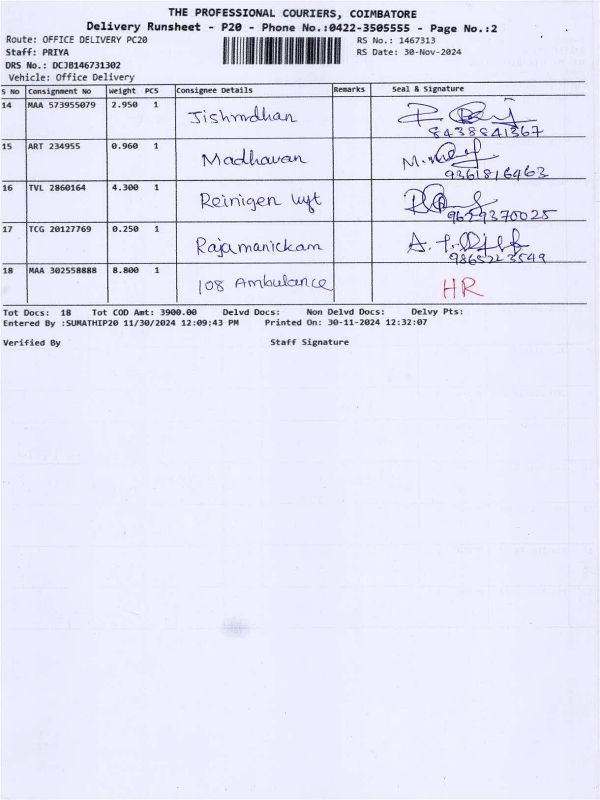 THE PROFESSIONAL COURIERS, COIMBATORE
Delivery Runsheet - P20 - Phone No.:0422-3505555 - Page No.:2
Route: OFFICE DELIVERY PC20 RS No.: 1467313
Staff: PRIYA RS Date: 30-Nov-2024
DRS No.: DCJB146731302
Vehicle: Office Delivery
S No Consignment No Weight PCS Consignee Details Remarks Seal & Signature
14 MAA 573955079 2.950 1
8438841367
15 ART 234955 0.960 1 Madhavan
9361816463
16 TVL 2860164 4.300 1 Reinigen
9659370025
17 TCG 20127769 0.250 1 Rajamanickam
9865223549
18 MAA 302558888 8.800 1 108 Ambulance HR
Tot Docs: 18 Tot COD Amt: 3900.00 Delvd Docs: Non Delvd Docs: Delvy Pts:
Entered By :SUMATHIP20 11/30/2024 12:09:43 PM Printed On: 30-11-2024 12:32:07
Verified By Staff Signature